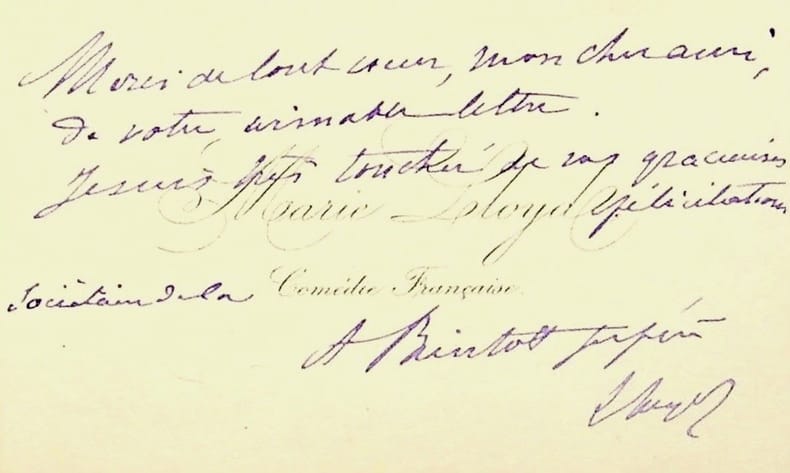 Merci de tout coeur, mon cher ami,
de votre aimable lettre.
Je suis très touché de vos gracieuses
Marie Lloyd félicitations
Sociétaire de la Comédie Française.
A Bientot j'espère
Lloyd